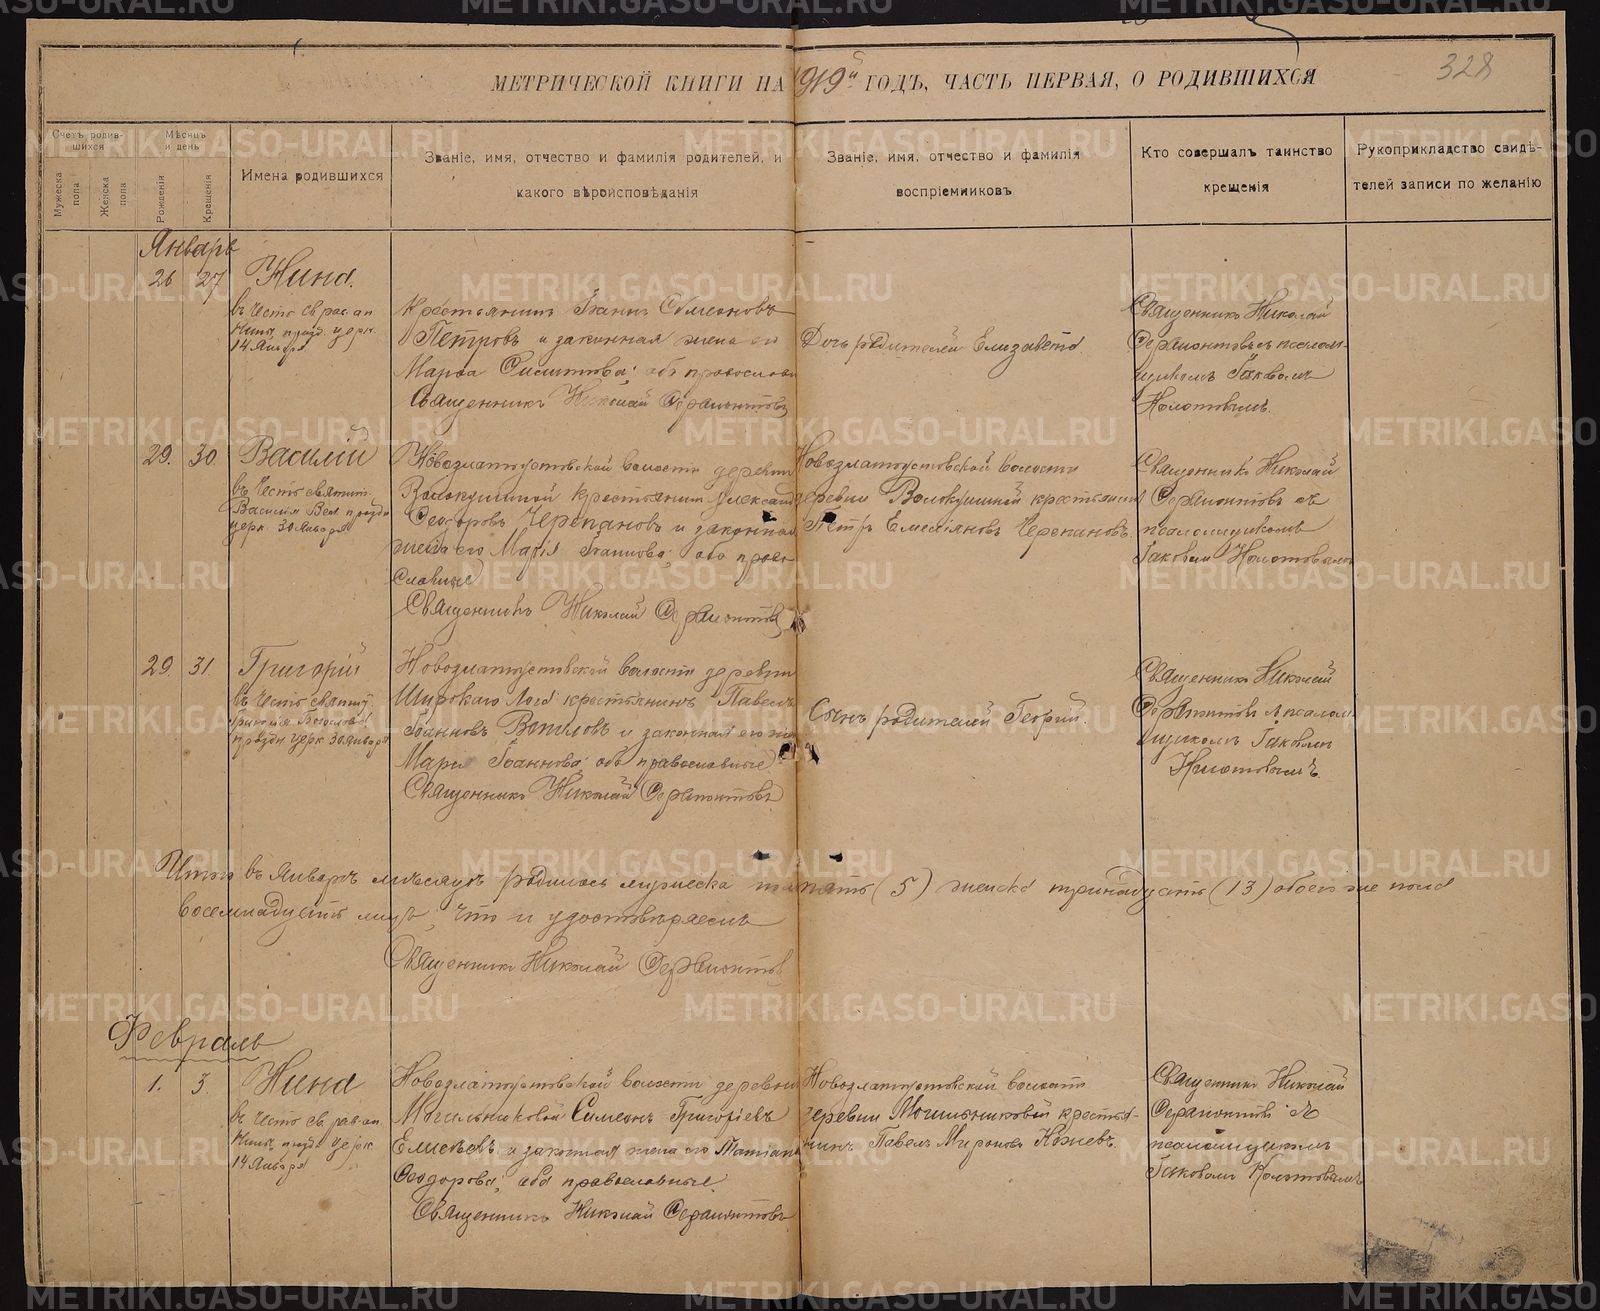 328
МЕТРИЧЕСКОЙ КНИГИ НА 1919й ГОДЪ, ЧАСТЬ ПЕРВАЯ, О РОДИВШИХСЯ
Счетъ родив-
шихся
Мужеска
пола
Женска
пола
Мѣсяцъ
и день
Рожденія
Крещенія
Имена родившихся
Званіе, имя, отчество и фамилія родителей, и
какого вѣроисповѣданія
Званіе, имя, отчество и фамилія
воспріемниковъ
Кто совершалъ таинство
крещенія
Рукоприкладство свидѣ-
телей записи по желанію
Январь
26 27 Нина.
въ честь св. рав. ап.
Нины празд. церк.
14 Января
Крестьянинъ Іоаннъ Симеоновъ
Петровъ и законная жена его
Марѳа; оба православн
Священникъ Николай Ферапонтовъ
Дочь родителей Елизавета.
Священникъ Николай
Ферапонтовъ съ псалом-
щикомъ Іаковомъ
29. 30. Василій
въ честь святит.
Василія Вел. празд
церк 30 Января
Новозлатоустовской волости деревни
Волокушиной крестьянинъ Александ
Феодоровъ Черепановъ и законная
жена его Марія Іоаннова; оба право-
славные
Священникъ Николай Ферапонтовъ
Новозлатоустовской волости
деревни Волокушиной крестьянинъ
Петръ Емеліяновъ Черепановъ.
Священникъ Николай
Ферапонтовъ съ
псаломщикомъ
Іаковомъ
29. 31. Григорій
въ честь святит
Григорія Богослова
праздн церк 30 Января
Новозлатоустовской волости деревни
Широкаго Лога крестьянинъ Павелъ
Іоанновъ и законная его жена
Марія Іоаннова; оба православные
Священникъ Николай Ферапонтовъ
Сынъ родителей Георгій.
Священникъ Николай
Ферапонтовъ съ псалом-
щикомъ Іаковомъ
Итого въ Январѣ мѣсяцѣ родилось мужеска пола пять (5) женска тринадцать (13) обоего же пола
восемнадцать лицъ, что и удостовѣряемъ
Священникъ Николай Ферапонтовъ
Февраль
1. 3. Нина
въ честь св. рав. ап.
Нины празд. церк
14 Января
Новозлатоустовской волости деревни
Могильниковой Симеонъ Григоріевъ
Елисѣевъ и законная жена его Татіана
Феодорова; оба православные.
Священникъ Николай Ферапонтовъ
Новозлатоустовской волости
деревни Могильниковой крестья-
нинъ Павелъ Мироновъ
Священникъ Николай
Ферапонтовъ съ
псаломщикомъ
Іаковомъ
METRIKI.GASO-URAL.RU